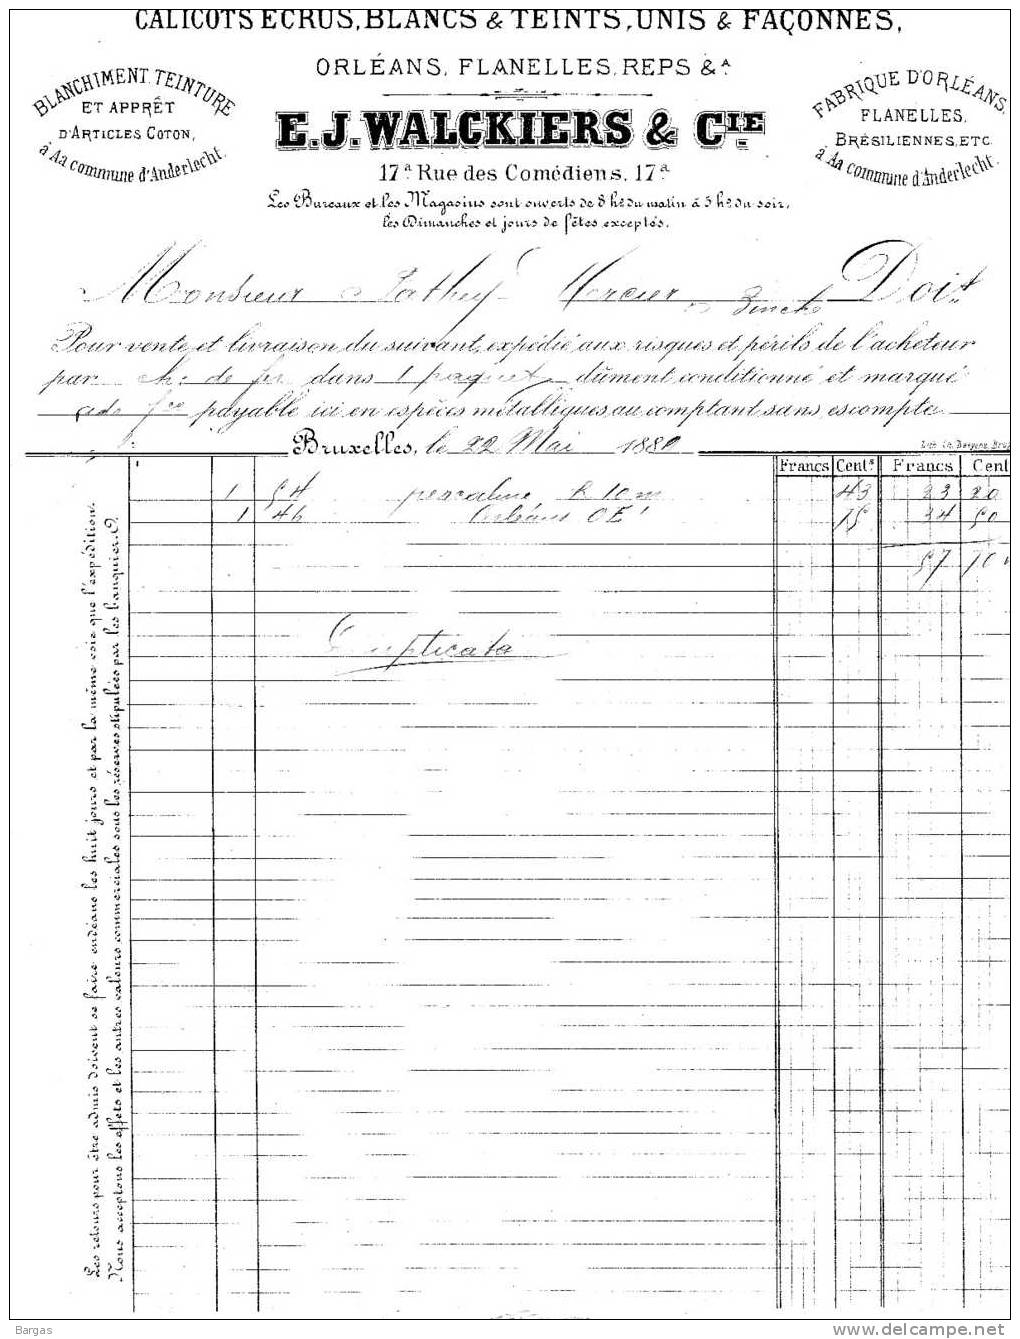 CALICOTS ECRUS, BLANCS & TEINTS, UNIS & FAÇONNES,
ORLÉANS, FLANELLES, REPS & A.
BLANCHIMENT, TEINTURE
ET APPRÊT
D'ARTICLES COTON,
à Aa commune d'Anderlecht.
E.J. WALCKIERS & CIE.
FABRIQUE D'ORLÉANS,
FLANELLES,
BRÉSILIENNES, ETC
à Aa commune d'Anderlecht.
17a. Rue des Comédiens, 17a.
Les Bureaux et les Magasins sont ouverts de 8 hs. du matin à 5 hs. du soir,
les Dimanches et jours de fêtes exceptés.
Monsieur Mercier Doit
Binche
Pour vente et livraison du suivant, expédié aux risques et périls de l'acheteur
par ch. de fer dans 1 paquet dûment conditionné et marqué
payable ici en espèces métalliques, au comptant sans escompte.
Bruxelles, le 22 Mai 188
Francs Cents Francs Cent
1 54 percaline 10 m 43 23 20
1 46 Orléans 75 34 50
57 70
Duplicata
Les retours pour être admis doivent se faire endéans les huit jours et par la même voie que l'expédition.
Nous acceptons les effets et les autres valeurs commerciales sous les réserves stipulées par les banquiers.
Bargas
delcampe.net